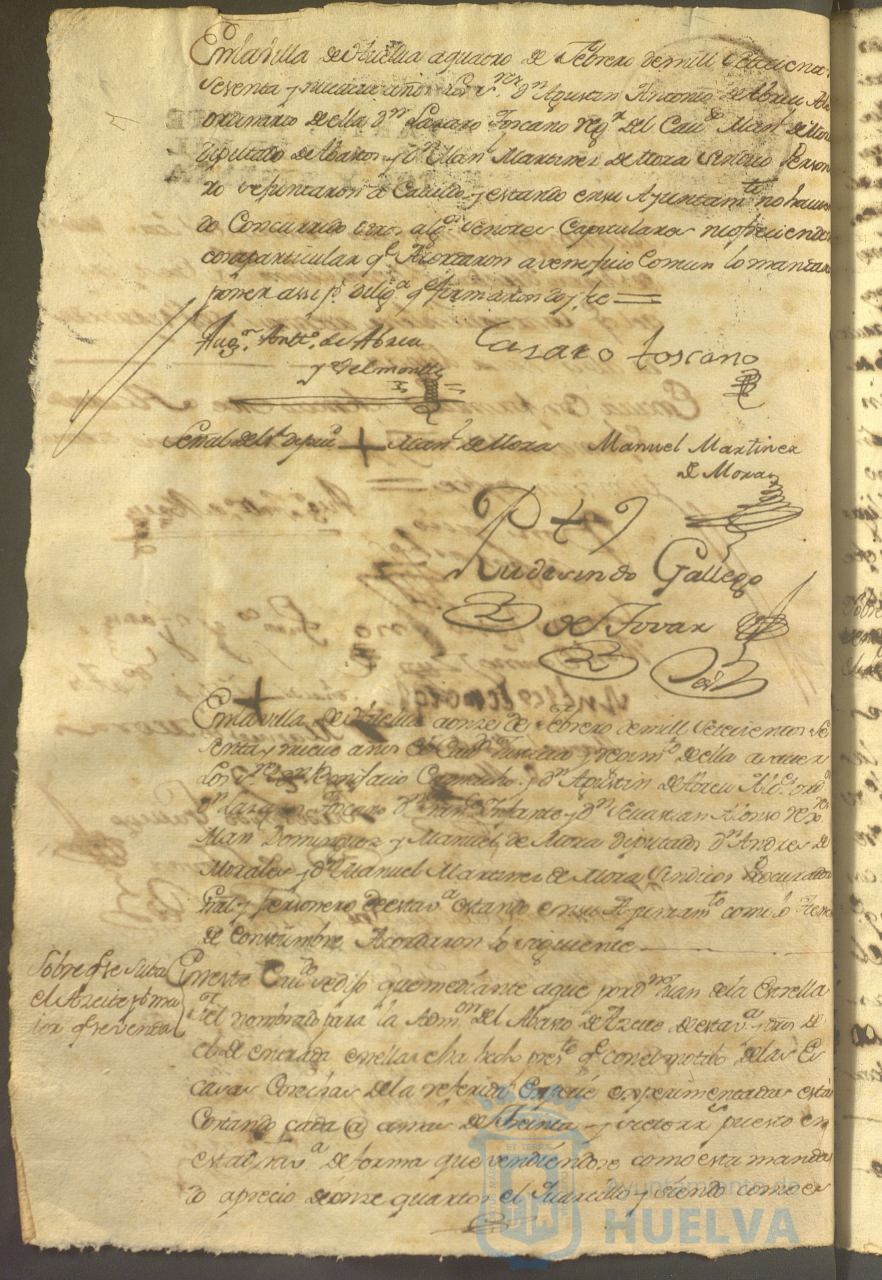 En la villa de Huelva a quatro de Febrero de mill setecienᵗ
sesenta y nueve años los sʳᵉˢ dⁿ Agustin Antonio de Abreu Al
ordinario della dⁿ Lazaro Toscano regʳ del Cauᵈᵒ Manˡ de Mora
Diputado de Abastos y dⁿ Manˡ Martinez de Mora Sindico Person
ro se juntaron a Cavildo y estando en su Ayuntamᵗᵒ no havien
do Concurrido otros algˢ señores Capitulares ni ofreciendo
cosa particular qᵉ Acordaron a veneficio Comun lo mandar
poner assi pʳ diligᵃ qᵉ firmaron doy fe =
Augⁿ Antᵒ de Abreu
y Delmonte
Lazaro toscano
Señal del sʳ dipuᵒ + Manˡ de Mora
Manuel Martinez
de Mora
Rudesindo Gallego
de Tovar
En la villa de Huelva a onze de Febrero de mill setecientos se
senta y nueve años el Cauᵈᵒ Justicia y regimᵗᵒ della a saver
Los sʳᵉˢ dⁿ Bonifacio Camacho y dⁿ Agustin de Abreu Alcᵉˢ ordˢ
dⁿ Lazaro Toscano dⁿ Infante y dⁿ Sevastian Alonso regˣ
Man Dominguez y Manuel de Mora Diputados dⁿ Andres de
Morales y dⁿ Manuel Martinez de Mora Sindicos Procurador
Gral y personero de esta vᵃ estando en su Ayuntamᵗᵒ como lo tiene
de Constumbre Acordaron lo siguiente
Sobre qᵉ se suba
el Azeite pʳ ma
ior qᵉ se venda
En este Cauᵈᵒ se dijo que mediante a que por dⁿ Juan de la Estrella
el nombrado para la Admᵒⁿ del Abasto de Azeite de esta vᵃ
el de entrada en ellas se ha hecho presᵗᵉ qᵉ con el motibo de las Es
casas Cosechas de la referida Especie experimentadas está
Costando cada @ a mas de Treinta y siete rrˢ puesto en
esta vᵃ de forma que vendiendose como esta manda
do a precio de onze quartos el Quartillo y siendo como es
ayuntamiento de
HUELVA